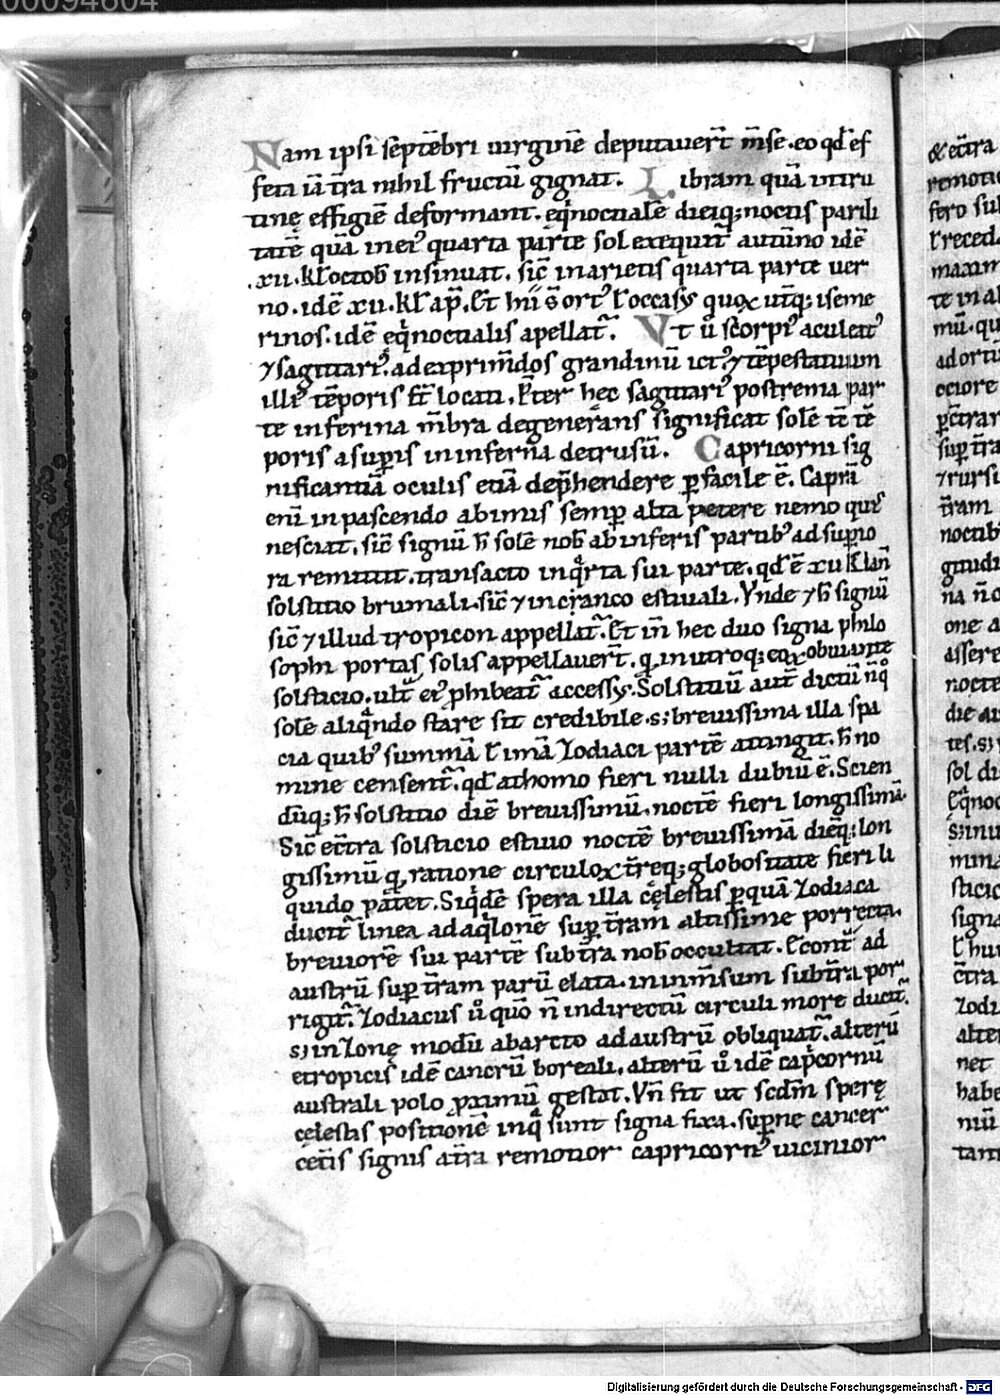 00094604
Nam ipsi septēbri uirginē deputauer̄t m̄se. eo qđ ef
feta iā t̄ra nihil fructū gignat. Libram quā intru
tinę effigiē deformant. eq̄noctiale dieiq; noctis parili
tatē quā in ei᷒ quarta parte sol exequit᷑ autūno idē
.xii. kł octob insinuat. sic̄ in arietis quarta parte uer
no. idē xii. kł ap̄. Et hīi s̄ ort᷒ ł occasus quoꝝ utq; iseme
rinos. idē eq̄noctialis apellat᷑. Vt ů scorpi᷒ aculeat᷒
⁊ sagittari᷒. ad exprim̄dos grandinū ict᷒ ⁊ tēpestatum
illi᷒ tēporis st̄ locati. P̄ter hęc sagittari᷒ postrema par
te inferina m̄bra degenerans significat solē tc̄ tē
poris a supis in inferna detrusū. Capricorni sig
nificantiā oculis etiā dep̄hendere p̱facile ē. Capri
eni in pascendo ab imis semp̱ alta petere nemo qui᷒
nesciat. sic̄ signū h̄ solē nob᷒ ab inferis partib᷒ ad supio
ra remittit. transacto in q̄rta sui parte. qđ ē xii kł ian̄
solstitio brumali. sic̄ ⁊ in cancro estiuali. Vnde ⁊ h̄ signū
sic̄ ⁊ illud tropicon appellat᷑. Et in̄ hec duo signa philo
sophi portas solis appellauer̄t. q̱ in utroq; eoꝝ obuiante
solsticio. ult᷑ ei᷒ phibeat᷑ accessus. Solstitiū aut̄ dictū n̄ q̱
solē aliq̄ndo stare sit credibile. s; breuissima illa spa
cia quib᷒ summā ł imā Zodiaci partē attingit. h̄ no
mine censent᷑. qđ athomo fieri nulli dubiū ē. Scien
dūq; h̄ solstitio diē breuissimū. noctē fieri longissimā.
Sic̄ ec̄tra solsticio estiuo noctē breuissimā dieq; lon
gissimū q̱ ratione circuloꝝ t̄req; globositate fieri li
quido patet. Siq̄dē spera illa cęlestis p̱ quā Zodiaca
ducit᷑ linea ad aq̄lonē sup̱ t̄ram altissime porrecta.
breuiorē sui partē sub t̄ra nob᷒ occultat. Econt᷑ ad
austrū sup̱ t̄ram parū elata. in inm̄sum sub t̄ra por
rigit᷑. Zodiacus ů quō n̄ in directū circuli more ducit᷑.
s; in Zonę modū ab arcto ad austrū obliquat᷑. alterū
e tropicis idē cancrū boreali. alterū ů idē cap̄cornū
australi polo paimū gestat. Vn̄ fit ut scdm̄ sperę
cęlestis positionē in q̱ sunt signa fixa. sup̱ne cancer
cet̄is signis a t̄ra remotior capricorn᷒ uicinior
Digitalisierung gefördert durch die Deutsche Forschungsgemeinschaft - DFG